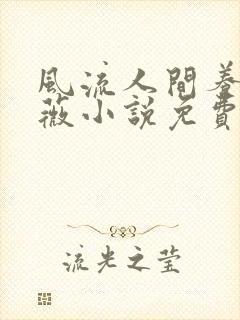 風流人間養
薇小說免費
流光之莹